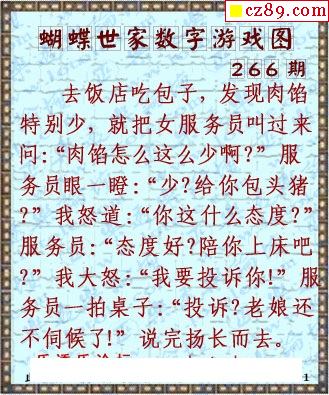 cz89.com
蝴蝶世家数字游戏图
266期
去饭店吃包子，发现肉馅
特别少，就把女服务员叫过来
问:“肉馅怎么这么少啊?” 服
务员眼一瞪:“少?给你包头猪
?” 我怒道:“你这什么态度?”
服务员:“态度好?陪你上床吧
?” 我大怒:“我要投诉你!” 服
务员一拍桌子:“投诉?老娘还
不伺候了!” 说完扬长而去。